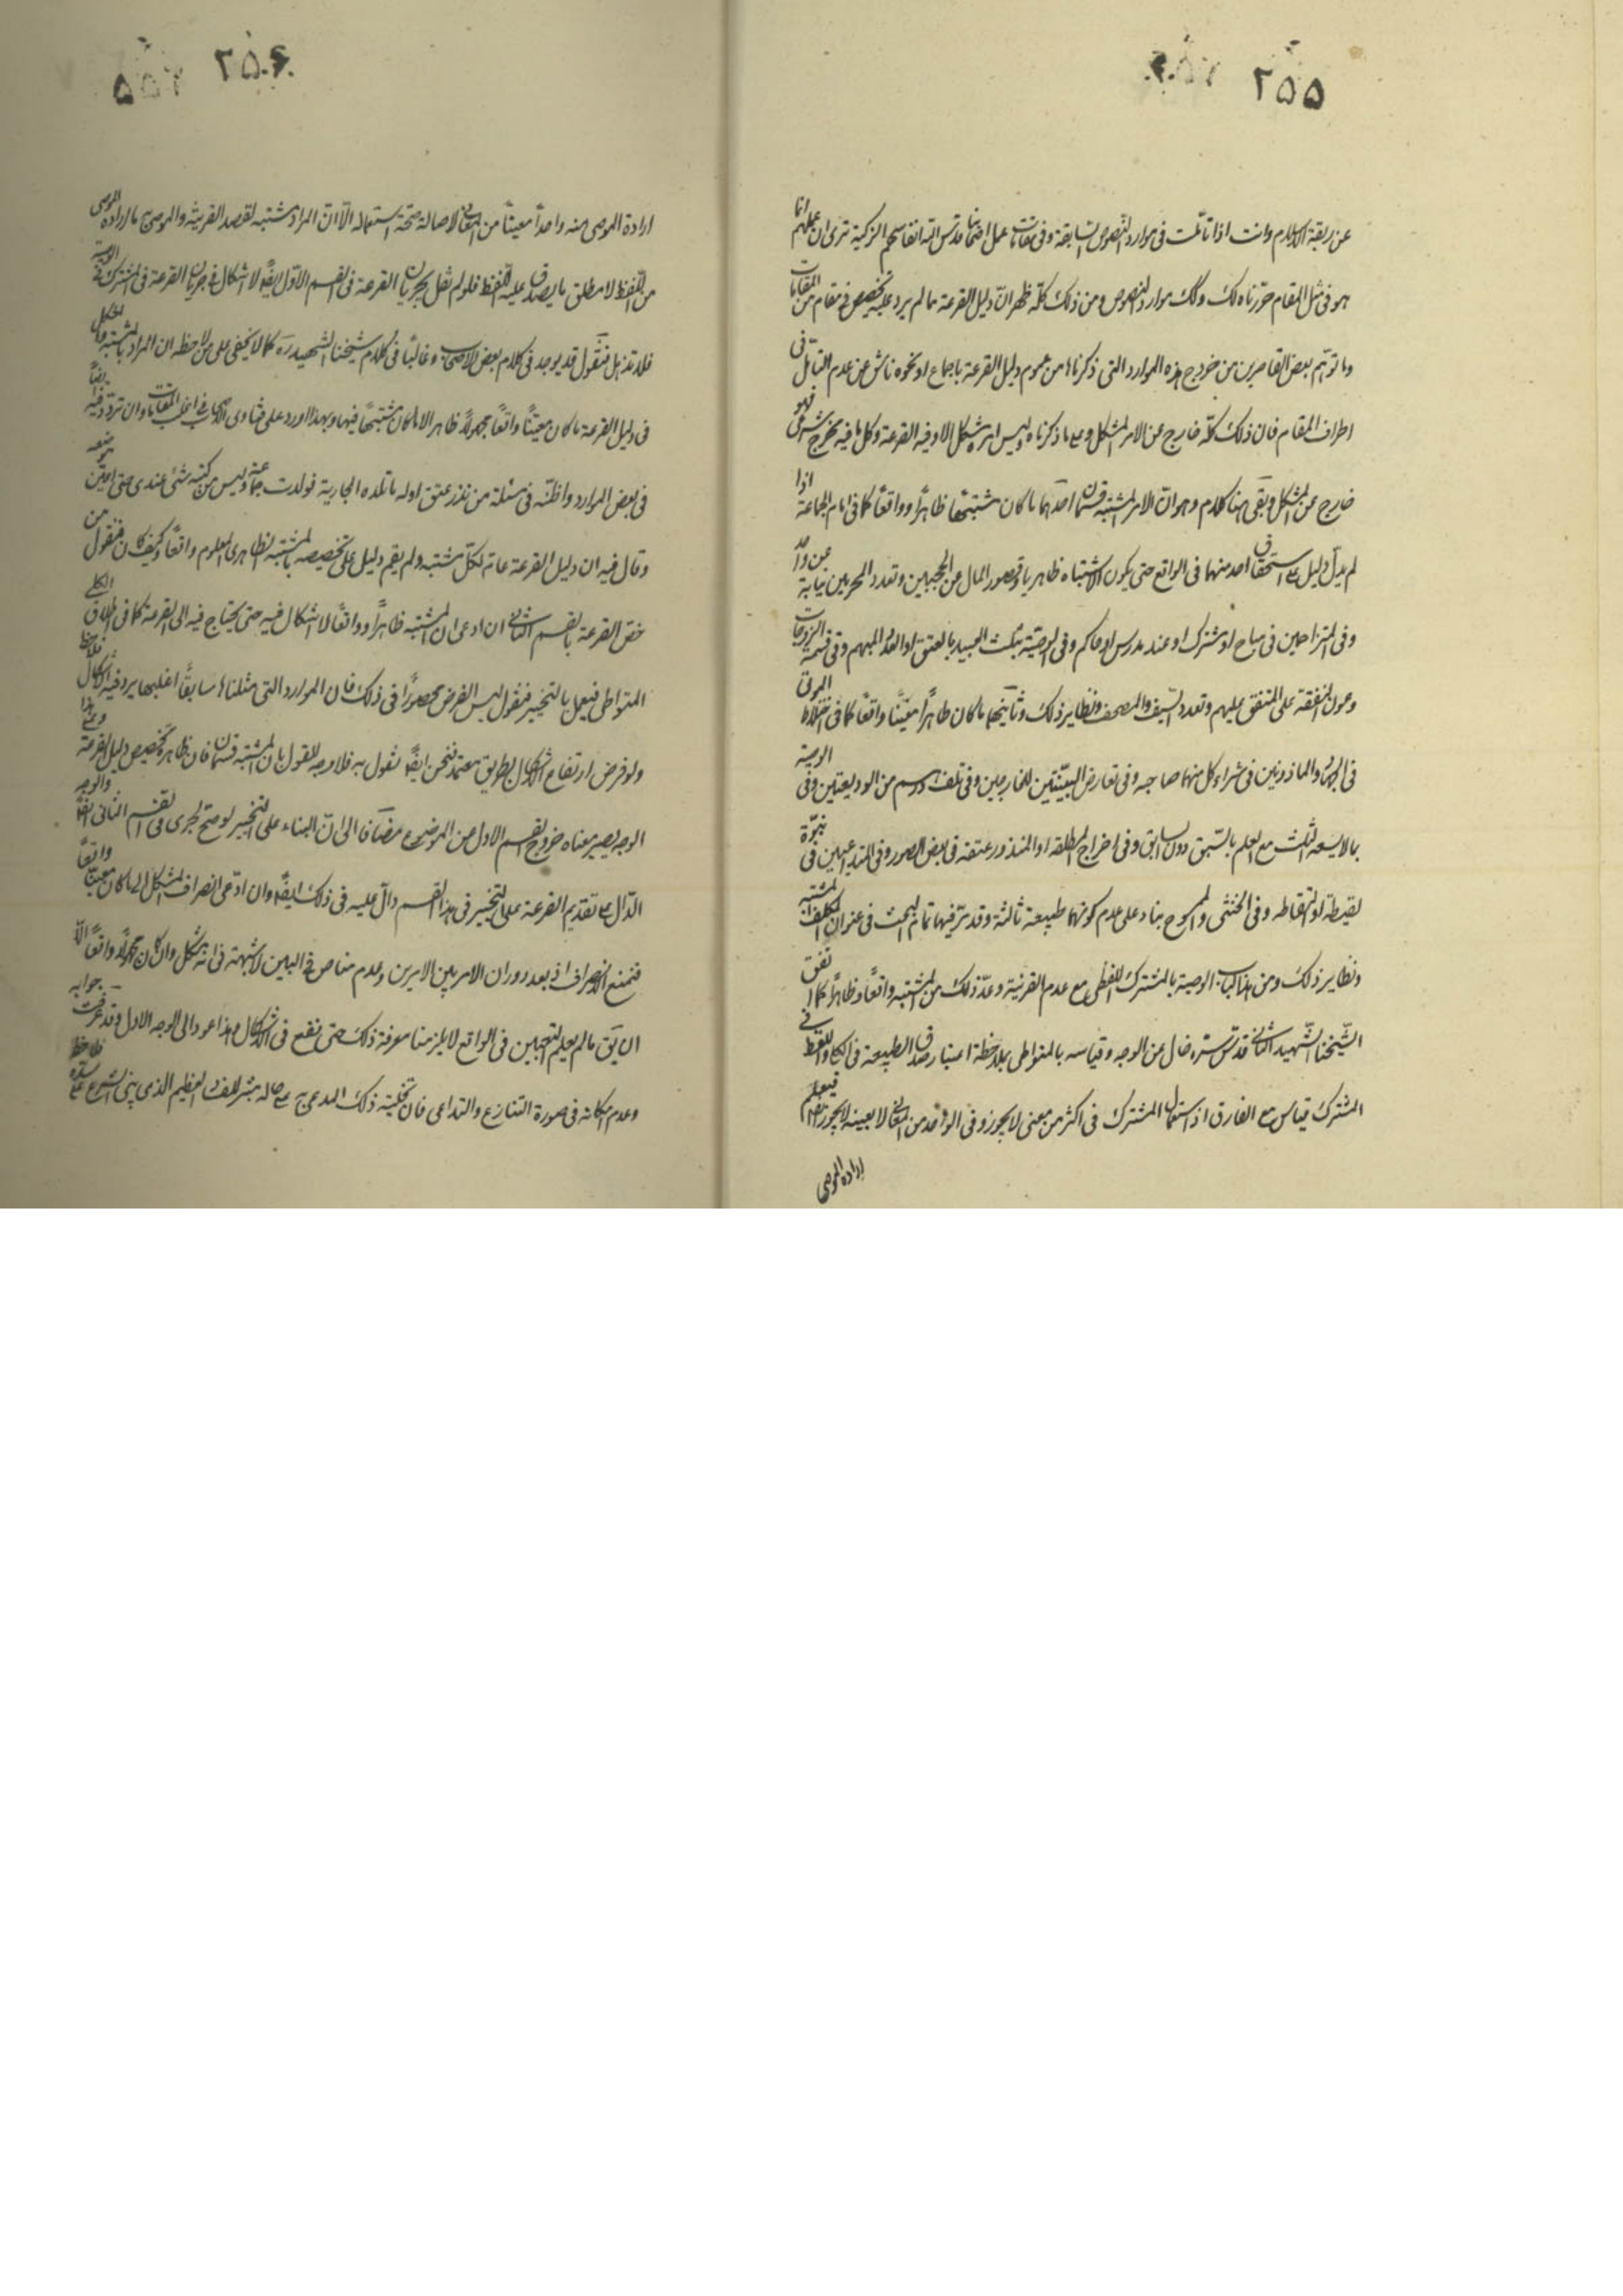 ٢٥٥
عن ربقة الكلام وانت اذا تأملت فى موارد النصوص السابقة وفى مقامات عمل اصحابنا قدس الله انفاسهم الزكية ترى ان عملهم انما
هو فى مثل المقام حررناه لك وكك موارد النصوص ومن ذلك كله ظهر ان دليل القرعة مما لم يرد عليه تخصيص فى مقام من المقامات
وما توهم بعض القاصرين من خروج هذه الموارد التى ذكرناها من عموم دليل القرعة باجماع او نحوه ناش عن عدم التأمل فى
اطراف المقام فان ذلك كله خارج عن الامر المشكل وعلى ما ذكرناه وليس امر مشكل الا وفيه القرعة وكل ما فيه مخرج شرعى فهو
خارج عن المشكل وبقى هنا كلام وهو ان الامر المشتبه قسمان احدهما ما كان مشتبها ظاهراً وواقعاً كما فى امام الجماعة اذا
لم يدل دليل على استحقاق احد منهما فى الواقع حتى يكون الاشتباه ظاهريا وقصور المال عن الحجتين وتعدد المحرمين نيابة عن واحد
وفى المتزاحمين فى مباح او مشترك او عند مدرس او حاكم وفى الوصية بثلث العبيد بالعتق او العدد المبهم وفى قسمة الزوجات
وعول النفقة على المنفق عليهم وتعدد السيف والمصحف ونظاير ذلك وثانيهما ما كان ظاهراً معيناً واقعاً كما فى اختلاط الموتى
فى الجهاد والماذونين فى شراء كل منهما صاحبه وفى تعارض البينتين للخارجين وفى تلف درهم من الوديعتين وفى الوصية
بما لا يسعه الثلث مع العلم بالسبق دون السابق وفى اخراج المطلقة او المنذور عتقه فى بعض الصور وفى المتداعيين فى بنوة
لقيطة او التقاطه وفى الخنثى والممسوح بناء على عدم كونهما طبيعة ثالثة وقد مر فيهما تمام البحث فى عنوان المكلف المشتبه
ونظاير ذلك ومن هذا الباب الوصية بالمشترك اللفظى مع عدم القرينة وعدّ ذلك من المشتبه واقعاً وظاهراً كما اتفق
لشيخنا الشهيد الثانى قدس سره خال عن الوجه وقياسه بالمتواطى بملاحظة اعتبار صدق الطبيعة فى الكلى واللفظ فى
المشترك قياس مع الفارق اذ استعمال المشترك فى اكثر من معنى لا يجوز وفى الواحد من المعانى لا بعينه لا يجوز ايضا فيعلم
ارادة الموصى
٢٥٦
ارادة الموصى منه واحداً معيناً من المعانى لاصالة صحة استعماله الا ان المراد مشتبه لفقد القرينة والموصى به ما اراده الموصى
من اللفظ لا مطلق ما يصدق عليه اللفظ فلو لم نقل بجريان القرعة فى القسم الاول ايضا لا اشكال فى جريان القرعة فى المشترك فى الوصية
فلا تذهل فنقول قد يوجد فى كلام بعض الاصحاب وغالبا فى كلام شيخنا الشهيد ره كما لا يخفى على من لاحظه ان المراد بالمشتبه والمشكل
فى دليل القرعة ما كان معيناً واقعاً مجهولاً ظاهرا لا ما كان مشتبهاً فيهما وبهذا اورد على فتاوى الاصحاب فى اغلب المقامات وان تردد فيه ايضاً
فى بعض الموارد واظنه فى مسئلة من نذر عتق اول ما تلده الجارية فولدت جماعة وليس من كتبه شئ عندى حتى اعين موضعه
وقال فيه ان دليل القرعة عام لكل مشتبه ولم يقم دليل على تخصيصه بالمشتبه الظاهرى المعلوم واقعاً وكيف كان فنقول من
خص القرعة بالقسم الثانى ان ادعى ان المشتبه ظاهراً وواقعاً لا اشكال فيه حتى يحتاج فيه الى القرعة كما فى اطلاق الكلى
المتواطى فيعمل بالتخيير فنقول ليس الفرض محصوراً فى ذلك فان الموارد التى مثلناها سابقاً اغلبها يرد فيه الاشكال فلاحظ
ولو فرض ارتفاع الاشكال بطريق معتمد فنحن ايضا نقول به فلا وجه للقول بان المشتبه قسمان فان ظاهره تخصيص دليل القرعة وعلى هذا
الوجه يصير معناه خروج القسم الاول من الموضوع مضافا الى ان البناء على التخيير لو صح لجرى فى القسم الثانى ايضا والوجه
الدال على تقديم القرعة على التخيير فى هذا القسم دال عليه فى ذلك ايضا وان ادعى انصراف المشكل الى ما كان معيناً واقعاً
فنمنع الانصراف اذ بعد دوران الامر بين الامرين وعدم مناص فى البين لا شبهة فى انه مشكل وان كان مجهولاً واقعاً الا
ان يق ما لم يعلم التعيين فى الواقع لا يلزمنا معرفة ذلك حتى نقع فى الاشكال وهذا عود الى الوجه الاول وقد عرفت جوابه
وعدم امكانه فى صورة التنازع والتداعى فان تخلية ذلك المدعى به على حاله مثير للفساد العظيم الذى بنى الشرع على سده فلاحظ